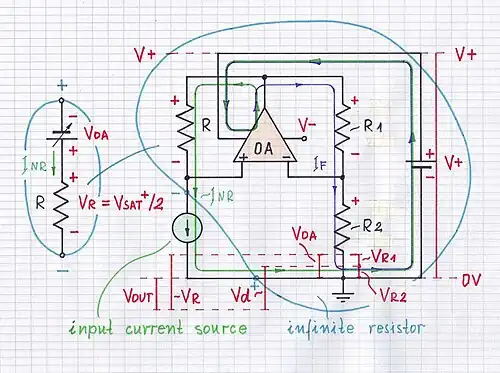 V+
V+
+
+
-
VOA
+
INR
+
R
-
VR = VSAT+/2
-
+
R
-
~INR
OA
+
-
V-
IF
+
~R1
-
+
R2
-
+
-
V+
VOA
~VR1
VR2
VOUT
~VR
Vd~
+
0V
input current source
infinite resistor